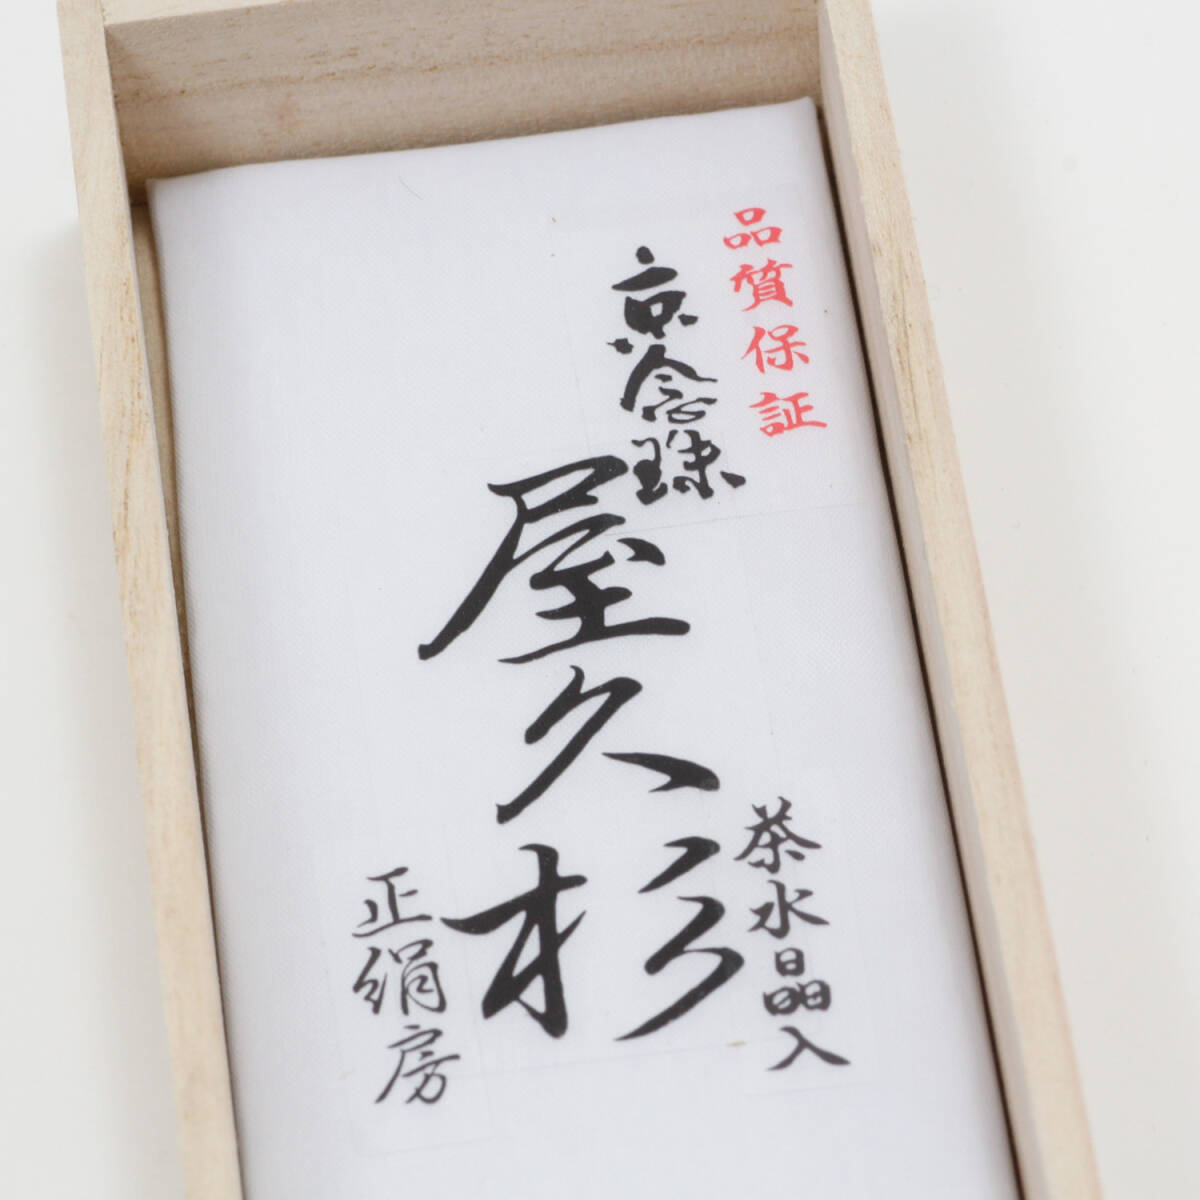 品質保証
京念珠
屋久杉
茶水晶入
正絹房